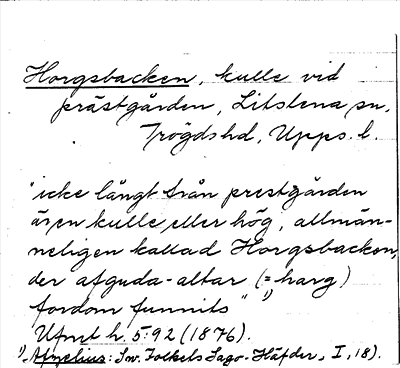 Horgsbacken, kulle vid
prästgården, Litslena sn,
Trögds hd, Upps. l.
"icke långt från prestgården
är en kulle eller hög, allmän-
neligen kallad Horgsbacken,
der afguda-altar (= harg)
fordom funnits" ¹)
Ufmt h. 5:92 (1876).
¹) Afzelius: Sv. Folkets Sago-Häfder, I, 18).